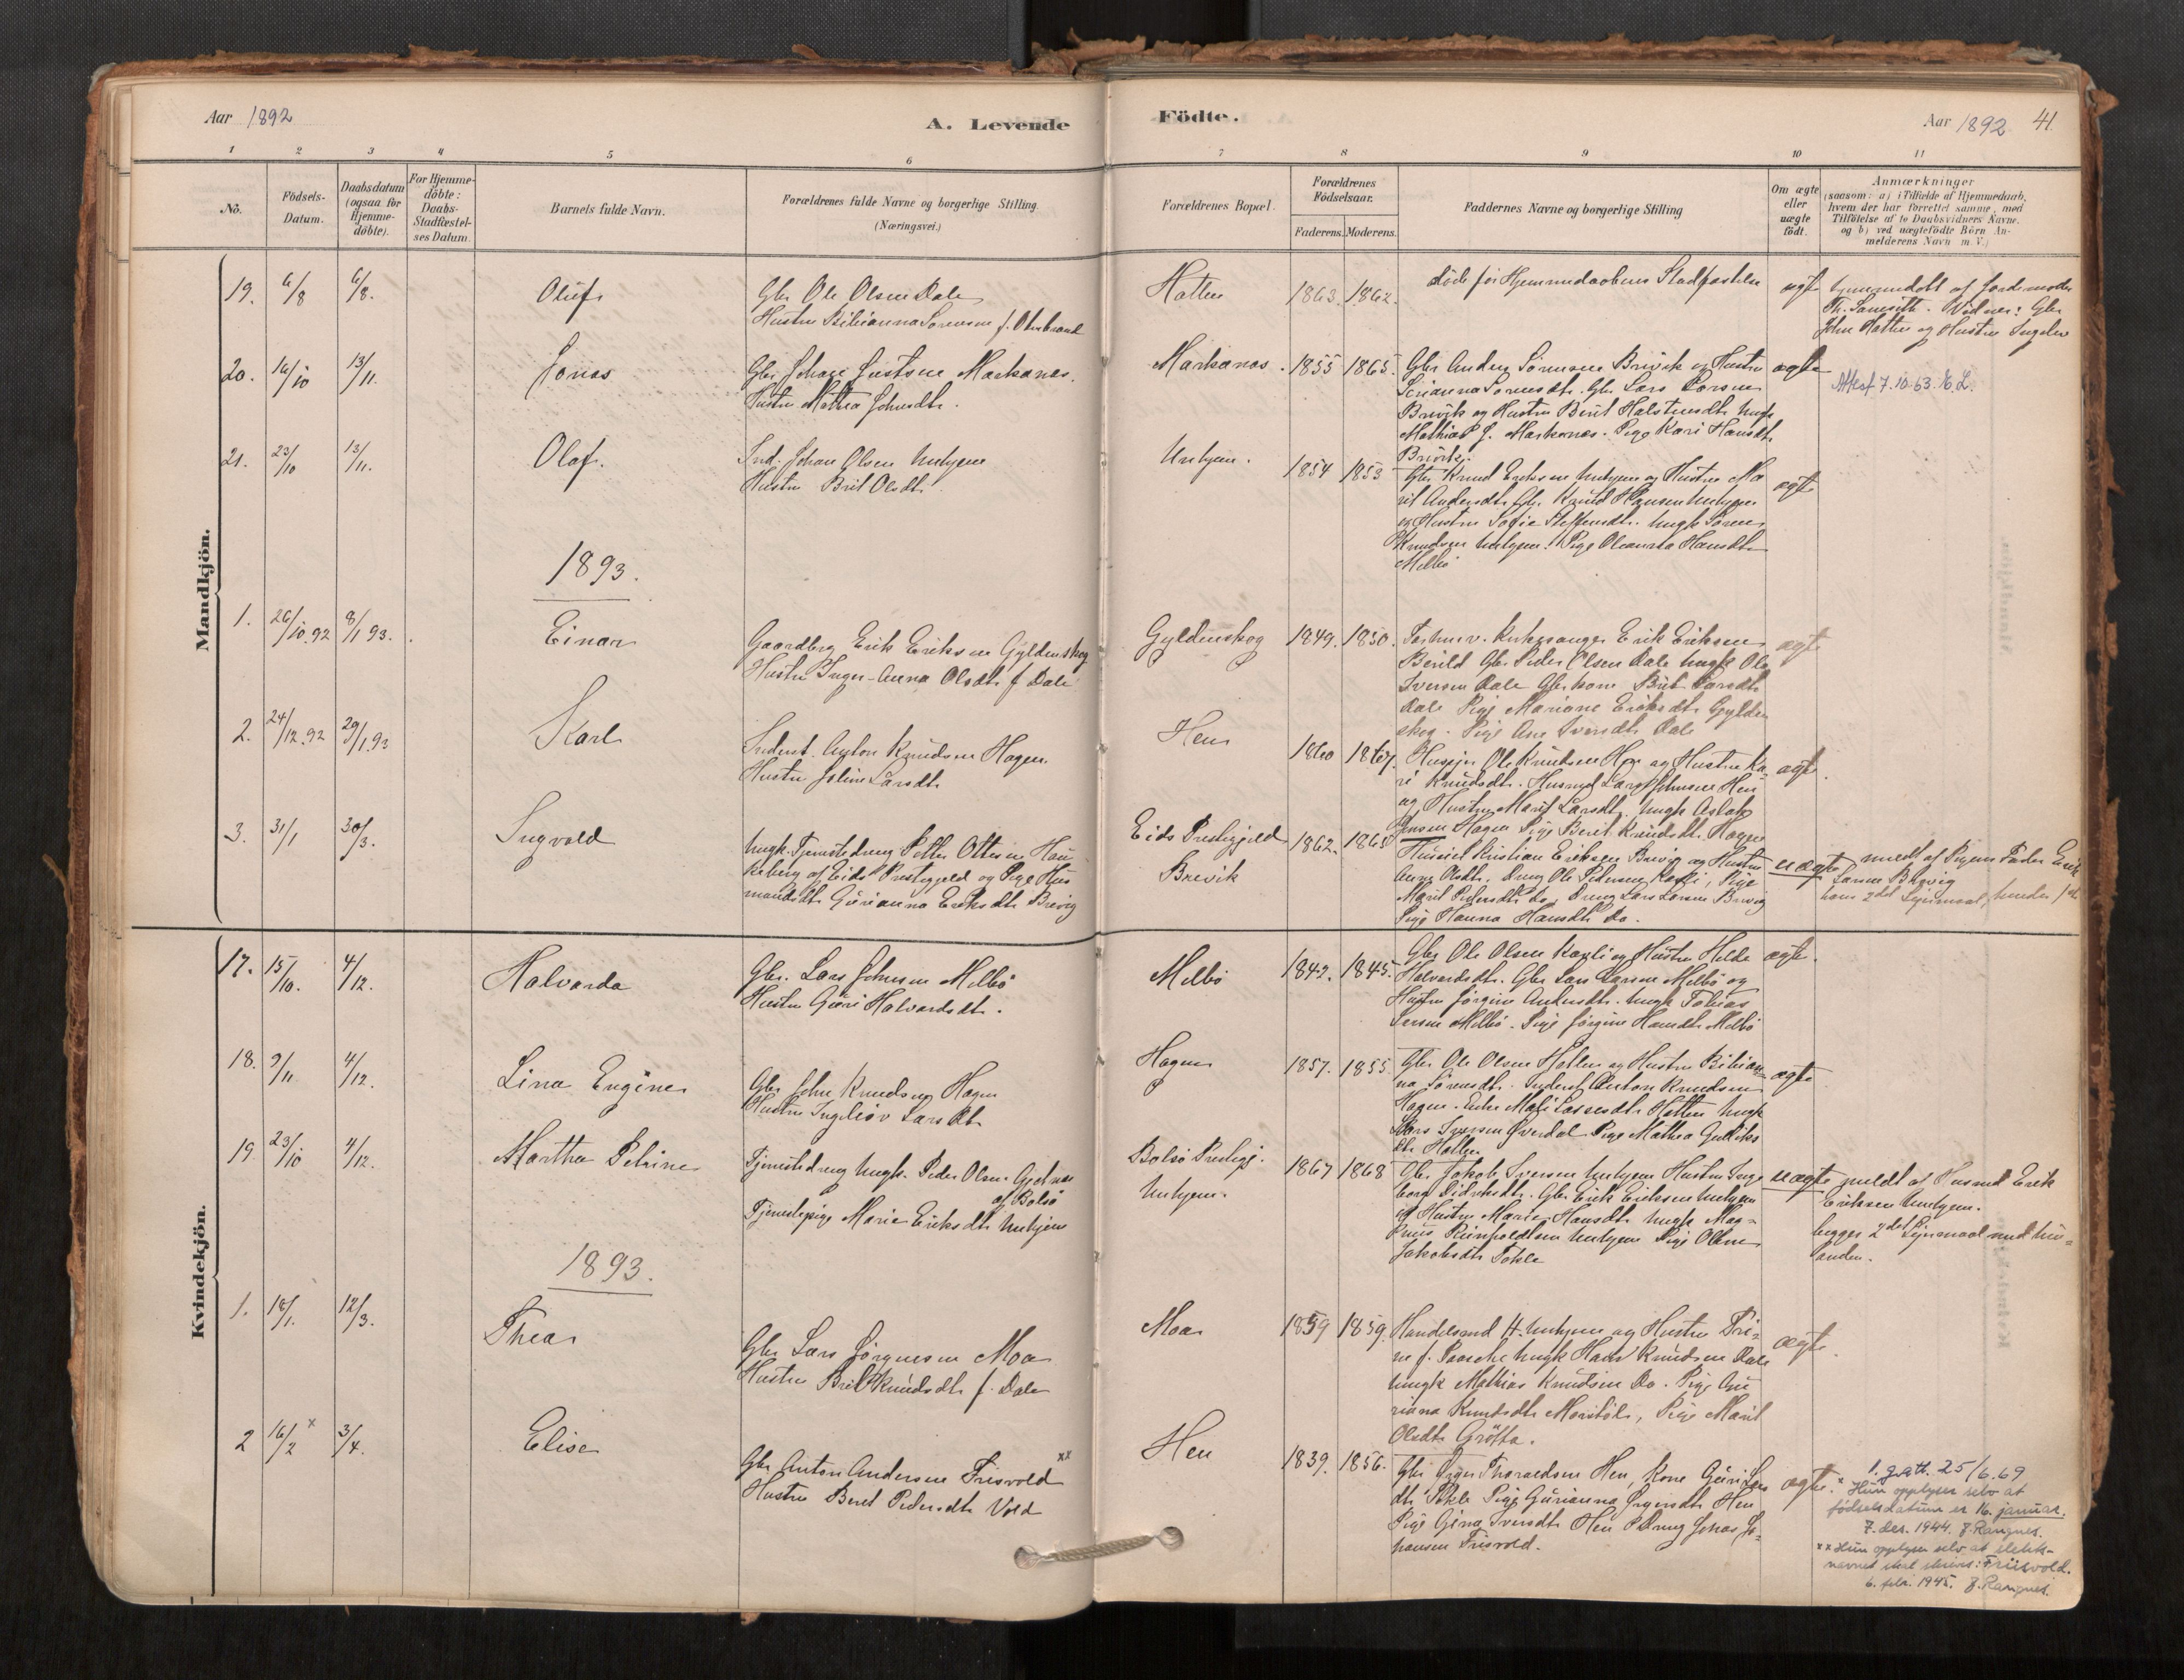 Aar 1892
A. Levende
Födte.
Aar 1892
41.
1 2 3 4 5 6 7 8 9 10 11
No.
Födsels-
Datum.
Daabsdatum
(ogsaa for
Hjemme-
döbte).
For Hjemme-
döbte:
Daabs-
Stadfæstel-
ses Datum.
Barnets fulde Navn.
Forældrenes fulde Navne og borgerlige Stilling
(Næringsvei.)
Forældrenes Bopæl.
Forældrenes
Födselsaar.
Faderens. Moderens.
Faddernes Navne og borgerlige Stilling
Om ægte
eller
uægte
födt.
Anmærkninger
(saasom: a) i Tilfælde af Hjemmedaab,
hvem der har forrettet samme, med
Tilföielse af to Daabsvidners Navne,
og b) ved uægtefödte Börn An-
melderens Navn m. V.)
Mandkjön.
19. 6/8 6/8.
Oluf
Gbr Ole Olsen Dale
Hustru Bibianna Sørensen f.
Hatten
1863. 1862.
døde før Hjemmedaabens Stadfæstelse
ægte
hjemmedøbt af Jordemoder
Vidner: Gbr
John Hatten og Hustru Ingeler
20. 16/10 13/11.
Jonas
Gbr Johan Justsen Markanæs.
Hustru Mathea Johnsdtr.
Markanæs.
1855 1865.
Gbr Anders Sørensen Brevik og Hustru
Serianna Sørensdtr. Gbr Lars Larsen
Brevik og Hustru Berit Halstensdtr Ungk
Mathias J. Markanæs. Pige Kari Hansdtr
Brevik.
ægte
Attest 7.10.63. E.L.
21. 23/10 13/11.
Olaf.
Ind. Johan Olsen Unhjem
Hustru Brit Olsdtr
Unhjem.
1854 1853
Gbr Knud Eriksen Unhjem og Hustru Ma
rit Andersdtr. Gbr. Knud Hansen Unhjem
og Hustru Sofie Steffensdtr. Ungk Søren
Knudsen Unhjem. Pige Oleanna Hansdtr
Melbø
ægte
1893.
1. 26/10.92 8/1 93.
Einar
Gaardbrg Erik Eriksen Gyldenskog
Hustru Inger-Anna Olsdtr f Dale
Gyldenskog
1849. 1850.
Kirkesanger Erik Eriksen
Berild Gbr Peder Olsen Dale Ungk Ole
Iversen Dale Gbrkone Brit Larsdtr
Dale Pige Mariane Eriksdtr Gylden
skog. Pige Ane Iversdtr Dale
ægte
2. 24/12.92 29/1.93
Karl
Inderst. Anton Knudsen Hagen.
Hustru Joline Larsdtr
Hen
1860 1867.
Ole Knudsen Hen og Hustru Ka-
ri Knudsdtr. Husmd Lars Johnsen Hen
og Hustru Marit Larsdtr, Ungk Aslak
Jensen Hagen Pige Berit Knudsdtr Hagen
ægte.
3. 31/1 30/3.
Ingvald
Ungk. Tjenestedreng Petter Ottesen Hau
keberg af Eids Prestegjeld og Pige Hus
mandsdtr Gurianna Eriksdtr Brevig
Eids Prestegjeld
Brevik
1862. 1865
Kristian Eriksen Brevig og Hustru
Anna Olsdtr. Dreng Ole Pedersen Kavli, Pige
Marit Pedersdtr Do. Dreng Lars Larsen Brevig
Pige Hanna Hansdtr Do.
uægte
meldt af Pigens Fader Erik
Larsen Brevig
hans 2det Leiermaal, hendes 1ste
Kvindekjön.
17. 15/10. 4/12.
Halvarda
Gbr. Lars Johnsen Melbø
Hustru Guri Halvardsdtr.
Melbø
1842. 1845.
Gbr Ole Olsen Kavli og Hustru Helde
Halvardsdtr. Gbr Lars Larsen Melbø og
Hustru Jørgine Andersdtr. Ungk Tobias
Larsen Melbø. Pige Jørgine Hansdtr Melbø
ægte.
18. 9/11 4/12.
Lina Engine
Gbr John Knudsen Hagen
Hustru Ingeleiv Larsdtr
Hagen
1857. 1855.
Gbr Ole Olsen Hatten og Hustru Bibian-
na Sørensdtr. Inderst Anton Knudsen
Hagen. Enke Mali Lassesdtr Hatten Ungk
Lars Iversen Øverdal Pige Mathea Gulliks
dtr Hatten
ægte
19. 23/10 4/12.
Martha Petrine
Tjenestedreng Ungk. Peder Olsen Gjetnæs
af Bolsø
Tjenestepige Marie Eriksdtr Unhjem
Bolsø Prestegj.
Unhjem.
1867 1868
Gbr Jakob Iversen Unhjem Hustru Inge
borg Didriksdtr. Gbr Erik Eriksen Unhjem
og Hustru Marie Hansdtr Ungk Mag-
nus Reinholdtsen Unhjem Pige Oline
Jakobsdtr Tokle
uægte
meldt af Husmd Erik
Eriksen Unhjem.
begges 2det Leiermaal med hin-
anden.
1893.
1. 18/1. 12/3.
Thea
Gbr Lars Jørgensen Moa
Hustru Brit Knudsdtr f. Dale
Moa
1859 1859.
Handelsmd H. Unhjem og Hustru Tri-
ne f. Paasche Ungk Hans Knudsen Dale
Ungk Mathias Knudsen Do. Pige Gu
rianna Knudsdtr Marstøl, Pige Marit
Olsdtr Grøtta.
ægte.
2 16/2 x 3/4.
Elise
Gbr Anton Andersen Frisvold xx
Hustru Beret Pedersdtr Vold
Hen
1839. 1856.
Gbr Ørger Thoraldsen Hen, Kone Guri Lars
dtr Tokle Pige Gurianna Ørgersdtr Hen
Pige Gina Iversdtr Hen Dreng Johas Jo-
hansen Frisvold.
ægte.
1. g. att. 25/6.69
x Hun opplyser selv at
fødselsdatum er 16. januar.
7. des. 1944. J. Rangnes.
xx Hun opplyser selv at slekts-
navnet skal skrives: Friisvold.
6. febr. 1945. J. Rangnes.